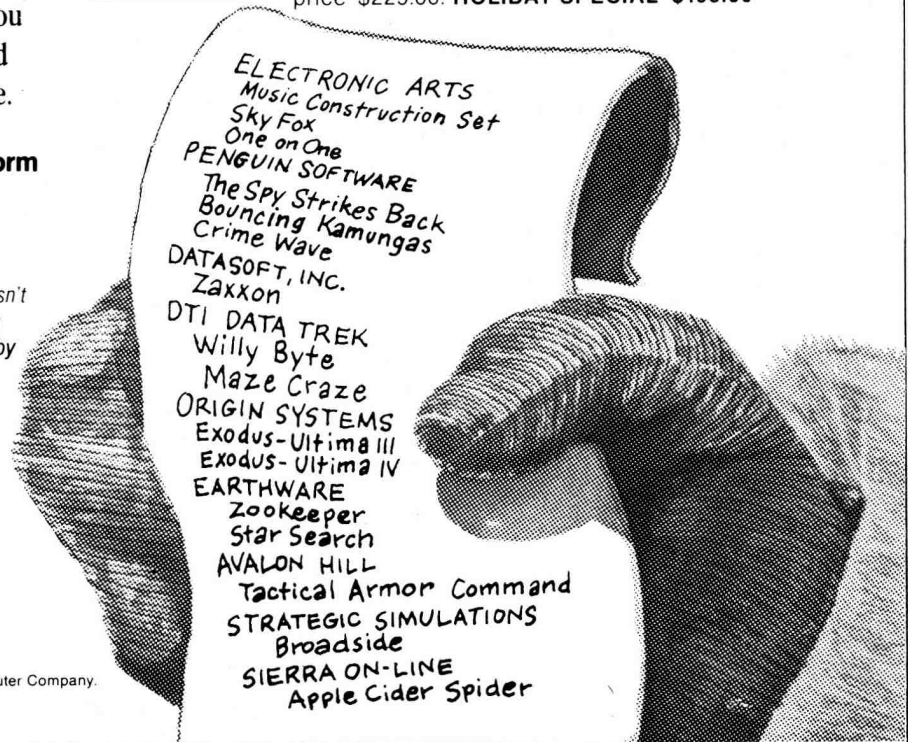 ou
d
e.
orm
sn't
by
uter Company.
ELECTRONIC ARTS
Music Construction Set
Sky Fox
One on One
PENGUIN SOFTWARE
The Spy Strikes Back
Bouncing Kamungas
Crime Wave
DATASOFT, INC.
Zaxxon
DTI DATA TREK
Willy Byte
Maze Craze
ORIGIN SYSTEMS
Exodus-Ultima III
Exodus-Ultima IV
EARTHWARE
Zookeeper
Star Search
AVALON HILL
Tactical Armor Command
STRATEGIC SIMULATIONS
Broadside
SIERRA ON-LINE
Apple Cider Spider